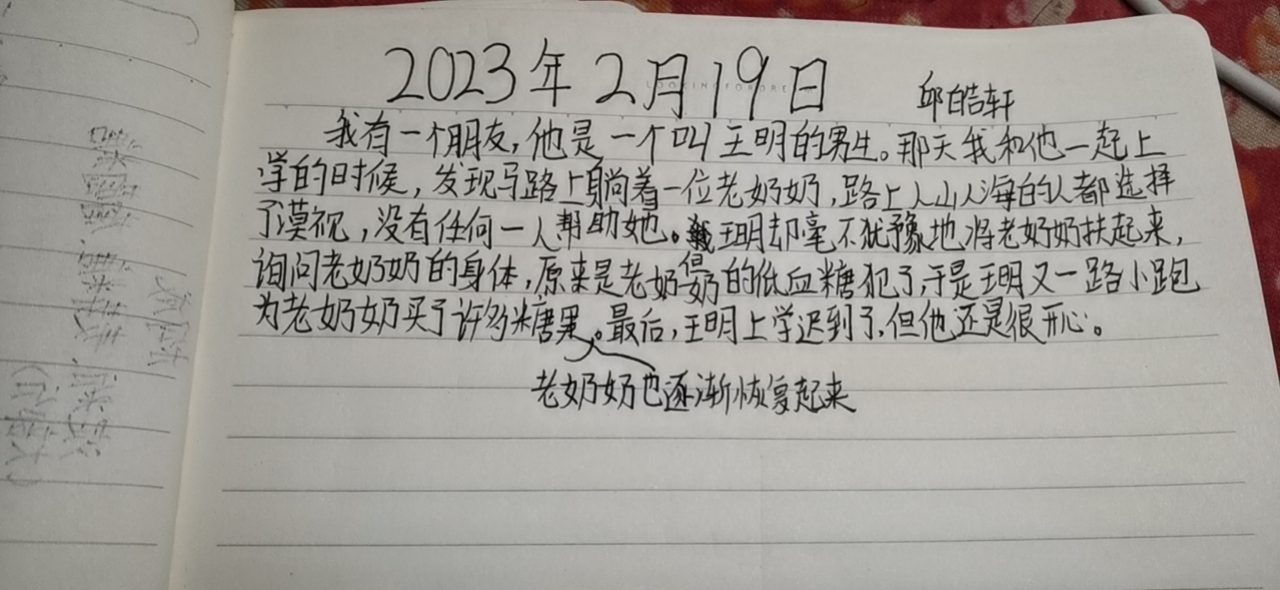 2023年2月19日
邱皓轩
我有一个朋友,他是一个叫王明的男生。那天我和他一起上
学的时候,发现马路上躺着一位老奶奶,路上人山人海的人都选择
了漠视,没有任何一人帮助她。王明却毫不犹豫地将老奶奶扶起来,
询问老奶奶的身体,原来是老奶奶的低血糖犯了,于是王明又一路小跑
为老奶奶买了许多糖果。最后,王明上学迟到了,但他还是很开心。
老奶奶也逐渐恢复起来